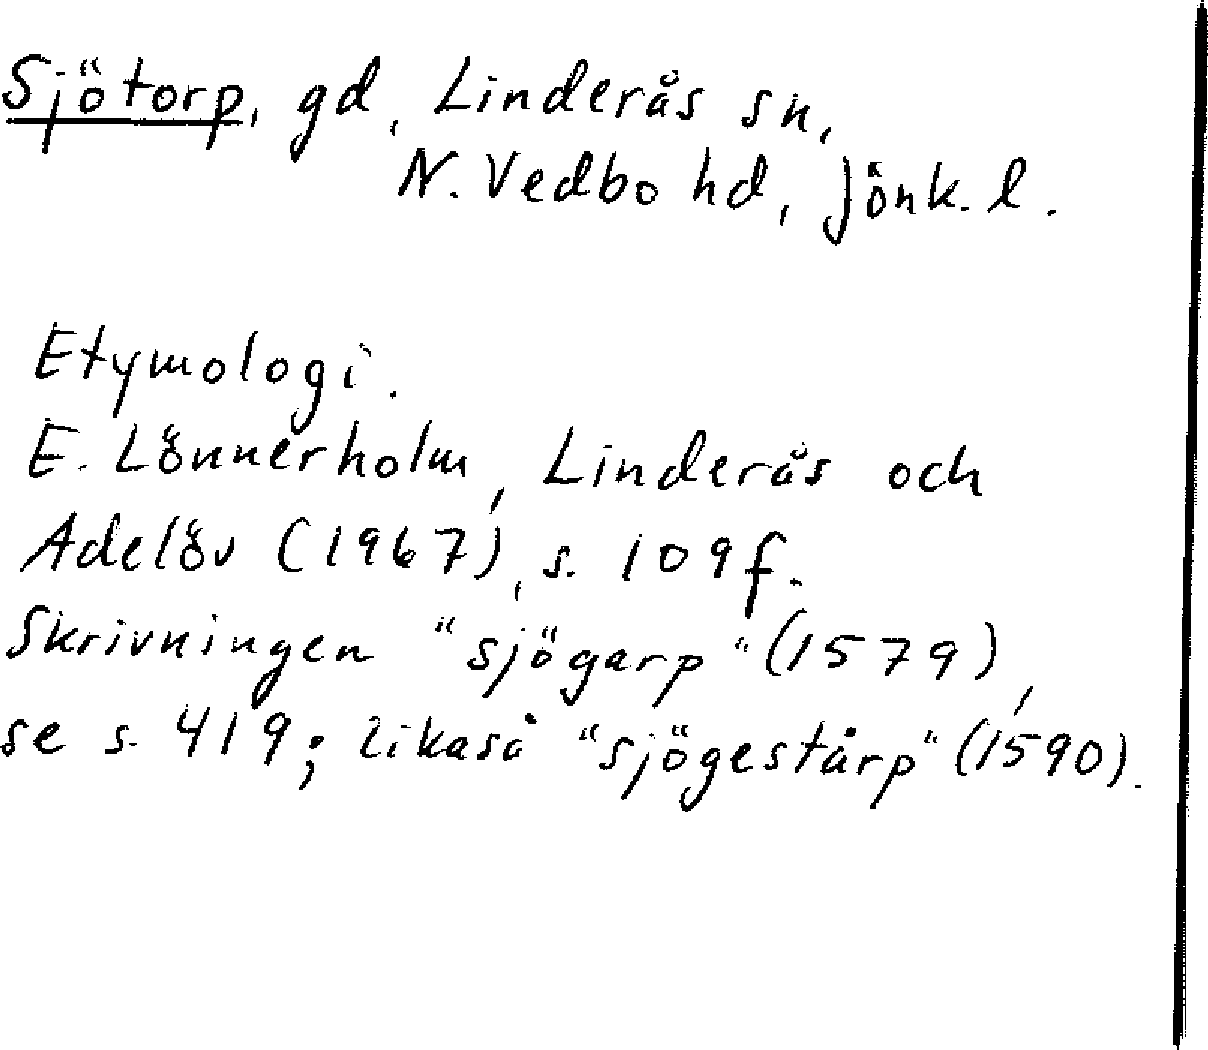 Sjötorp, gd, Linderås sn,
N. Vedbo hd, Jönk. l.
Etymologi.
E. Lönnerholm, Linderås och
Adelöv (1967), s. 109 f.
Skrivningen "sjögarp" (1579),
se s. 419; likaså "sjögestårp" (1590).